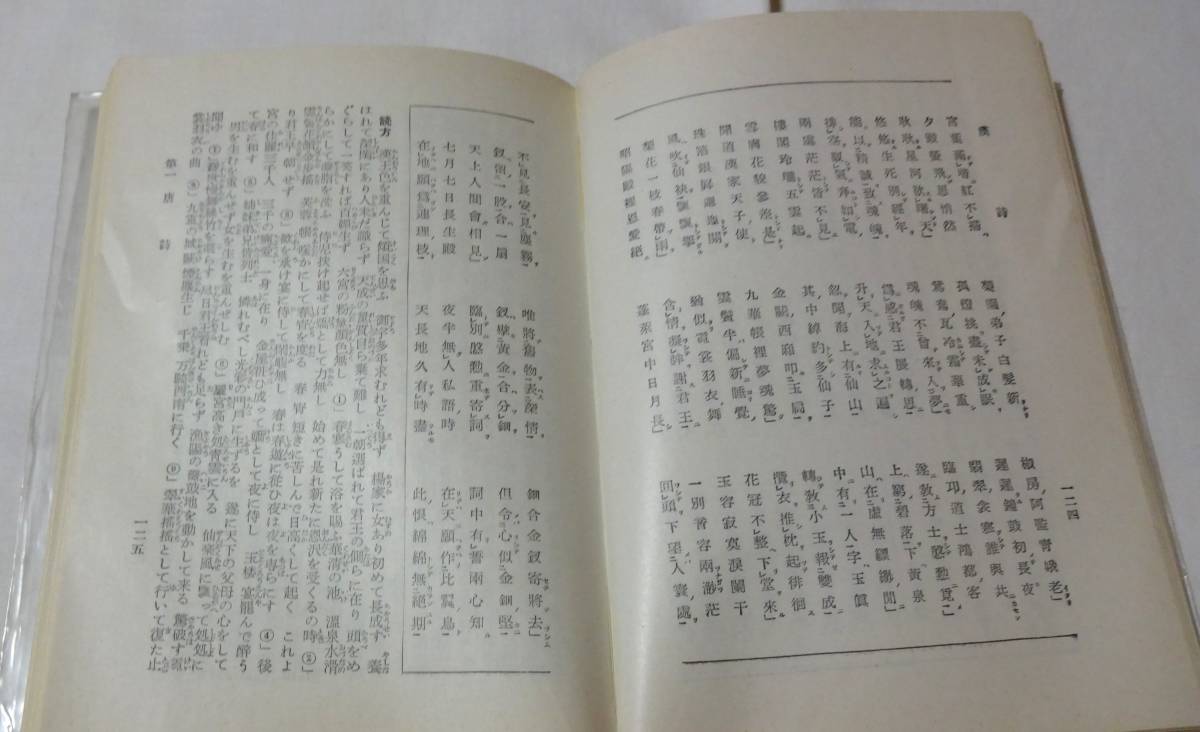 漢詩
一二四
宮葉滿階紅不掃 梨園弟子白髮新 椒房阿監青娥老
夕殿螢飛思悄然 孤燈挑盡未成眠 遲遲鐘鼓初長夜
耿耿星河欲曙天 鴛鴦瓦冷霜華重 翡翠衾寒誰與共
悠悠生死別經年 魂魄不曾來入夢 臨邛道士鴻都客
能以精誠致魂魄 爲感君王展轉思 遂敎方士慇懃覓
排空馭氣奔如電 升天入地求之遍 上窮碧落下黃泉
兩處茫茫皆不見 忽聞海上有仙山 山在虛無縹緲間
樓閣玲瓏五雲起 其中綽約多仙子 中有一人字玉眞
雪膚花貌參差是 金闕西廂叩玉扃 轉敎小玉報雙成
聞道漢家天子使 九華帳裡夢魂驚 攬衣推枕起徘徊
珠箔銀屛邐迤開 雲鬢半偏新睡覺 花冠不整下堂來
風吹仙袂飄飄擧 猶似霓裳羽衣舞 玉容寂寞淚闌干
梨花一枝春帶雨 含情凝睇謝君王 一別音容兩渺茫
昭陽殿裡恩愛絕 蓬萊宮中日月長 回頭下望人寰處
不見長安見塵霧 唯將舊物表深情 鈿合金釵寄將去
釵留一股合一扇 釵擘黃金合分鈿 但令心似金鈿堅
天上人間會相見 臨別慇懃重寄詞 詞中有誓兩心知
七月七日長生殿 夜半無人私語時 在天願作比翼鳥
在地願爲連理枝 天長地久有時盡 此恨綿綿無絕期
読方 漢王色を重んじて傾国を思ふ 御宇多年求むれども得ず 楊家に女あり初めて長成す 養
はれて深閨にあり人未だ識らず 天成の麗質自ら棄て難し 一朝選ばれて君王の側らに在り 頭をめ
ぐらして一笑すれば百媚生ず 六宮の粉黛顔色無し ①春寒うして浴を賜ふ華清の池 温泉水滑
らかにして凝脂を洗ふ 侍児扶け起せば嬌として力無し 始めて是れ新たに恩沢を受くるの時②
雲鬢花顔金歩揺 芙蓉の帳暖かにして春宵を度る 春宵短きに苦しんで日高くして起く これよ
り君王早朝せず ③歓を承け宴に侍して閑暇無し 春は春遊に従ひ夜は夜を専らにす ④後
宮の佳麗三千人 三千の寵愛一身に在り 金屋粧ひ成って嬌として夜に侍し 玉楼宴罷んで酔う
て春に和す ⑤姉妹弟兄皆列土 憐れむべし光彩の門戸に生ずるを 遂に天下の父母の心をして
男を生むを重んぜず女を生むを重んぜしむ ⑥驪宮高き処青雲に入る 仙楽風に飄って処処に
聞ゆ ⑦緩歌慢舞糸竹を凝らす 尽日君王看れども足らず 漁陽の鼙鼓地を動かして来る 驚破す霓
裳羽衣の曲 ⑧九重の城闕煙塵生じ 千乗万騎西南に行く ⑨翠華揺揺として行いて復た止
第一 唐詩
一二五